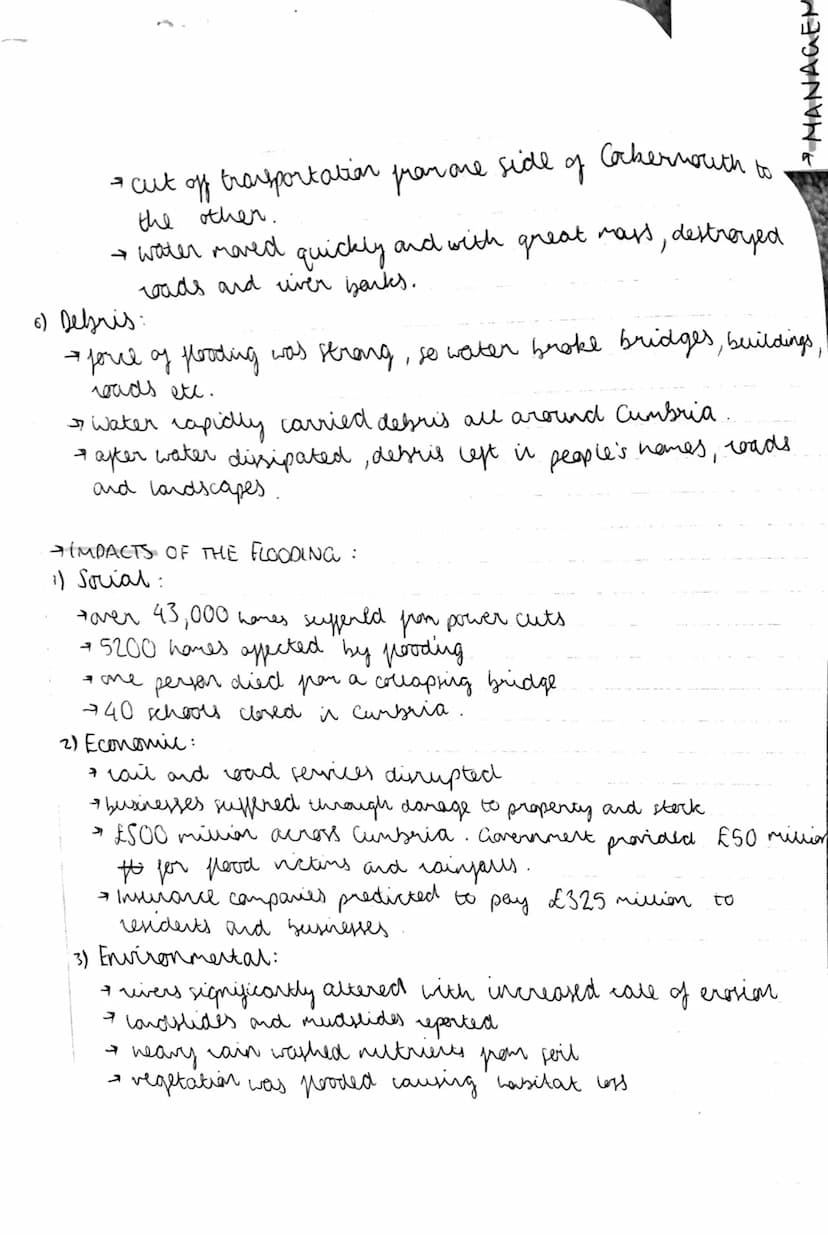 → MANAGEM
→ cut off transportation from one side of Cockermouth to
the other.
→ water moved quickly and with great mass, destroyed
roads and river banks.
6) Debris:
→ force of flooding was strong, so water broke bridges, buildings,
roads etc.
→ Water rapidly carried debris all around Cumbria.
→ after water dissipated, debris left in people's homes, roads
and landscapes.
→ IMPACTS OF THE FLOODING:
1) Social:
→ over 43,000 homes suffered from power cuts
→ 5200 homes affected by flooding
→ one person died from a collapsing bridge
→ 40 schools closed in Cumbria.
2) Economic:
→ rail and road services disrupted
→ businesses suffered through damage to property and stock
→ £500 million across Cumbria. Government provided £50 million
for flood victims and rainfalls.
→ Insurance companies predicted to pay £325 million to
residents and businesses.
3) Environmental:
→ rivers significantly altered with increased rate of erosion
→ landslides and mudslides reported
→ heavy rain washed nutrients from soil
→ vegetation was flooded causing habitat loss